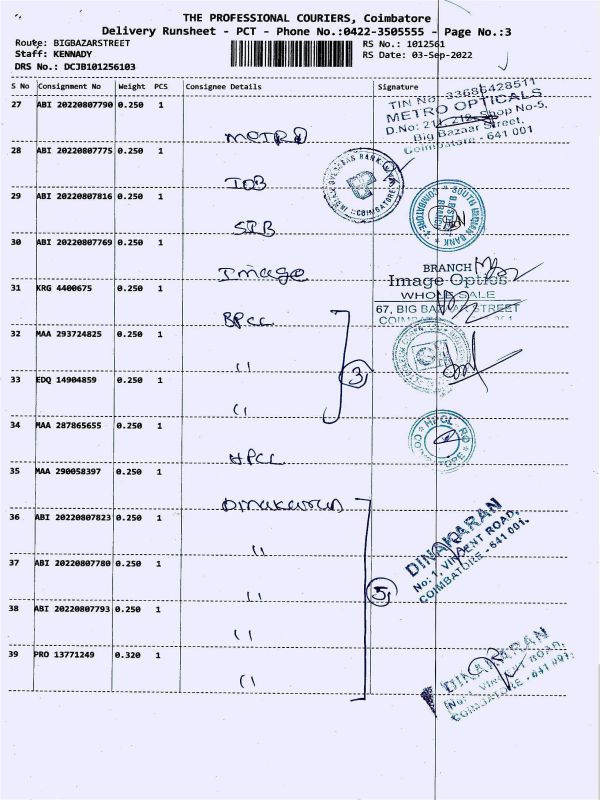 THE PROFESSIONAL COURIERS, Coimbatore
Delivery Runsheet - PCT - Phone No.:0422-3505555 - Page No.:3
Route: BIGBAZARSTREET
RS No.: 1012561
Staff: KENNADY
RS Date: 03-Sep-2022
DRS No.: DCJB101256103
S No Consignment No Weight PCS Consignee Details Signature
27 ABI 20220807790 0.250 1
METRO
TIN No: 33686428511
METRO OPTICALS
D.No: 211, 212, Shop No-5,
Big Bazaar Street,
Coimbatore - 641 001
28 ABI 20220807775 0.250 1
IOB
29 ABI 20220807816 0.250 1
SIB
SOUTH INDIAN BANK
30 ABI 20220807769 0.250 1
Image
BRANCH
Image Optics
WHOLE SALE
67, BIG BAZAAR STREET
31 KRG 4400675 0.250 1
BPCL
32 MAA 293724825 0.250 1
"
33 EDQ 14904859 0.250 1
"
3
34 MAA 287865655 0.250 1
HPCL
HPCL - RO
COIMBATORE
35 MAA 290058397 0.250 1
Dinakaran
36 ABI 20220807823 0.250 1
"
DINAKARAN
No: 1, VINCENT ROAD,
COIMBATORE - 641 001.
37 ABI 20220807780 0.250 1
"
5
38 ABI 20220807793 0.250 1
"
39 PRO 13771249 0.320 1
"
DINAKARAN
No: 1, VINCENT ROAD,
COIMBATORE - 641 001.